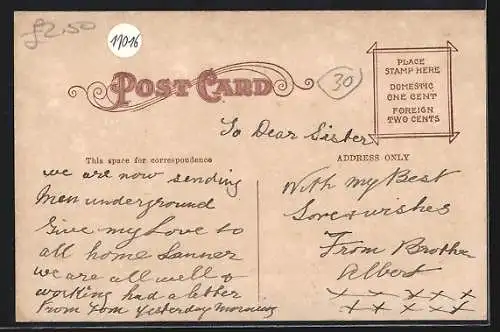 £2.50
17016
POST CARD
30
PLACE
STAMP HERE
DOMESTIC
ONE CENT
FOREIGN
TWO CENTS
To Dear Sister
This space for correspondence
ADDRESS ONLY
we are now sending
Men underground
Give my Love to
all home
we are all well &
working had a letter
From Tom Yesterday Morning
With My Best
Love & wishes
From Brother
Albert
x x x x x
x x x x x